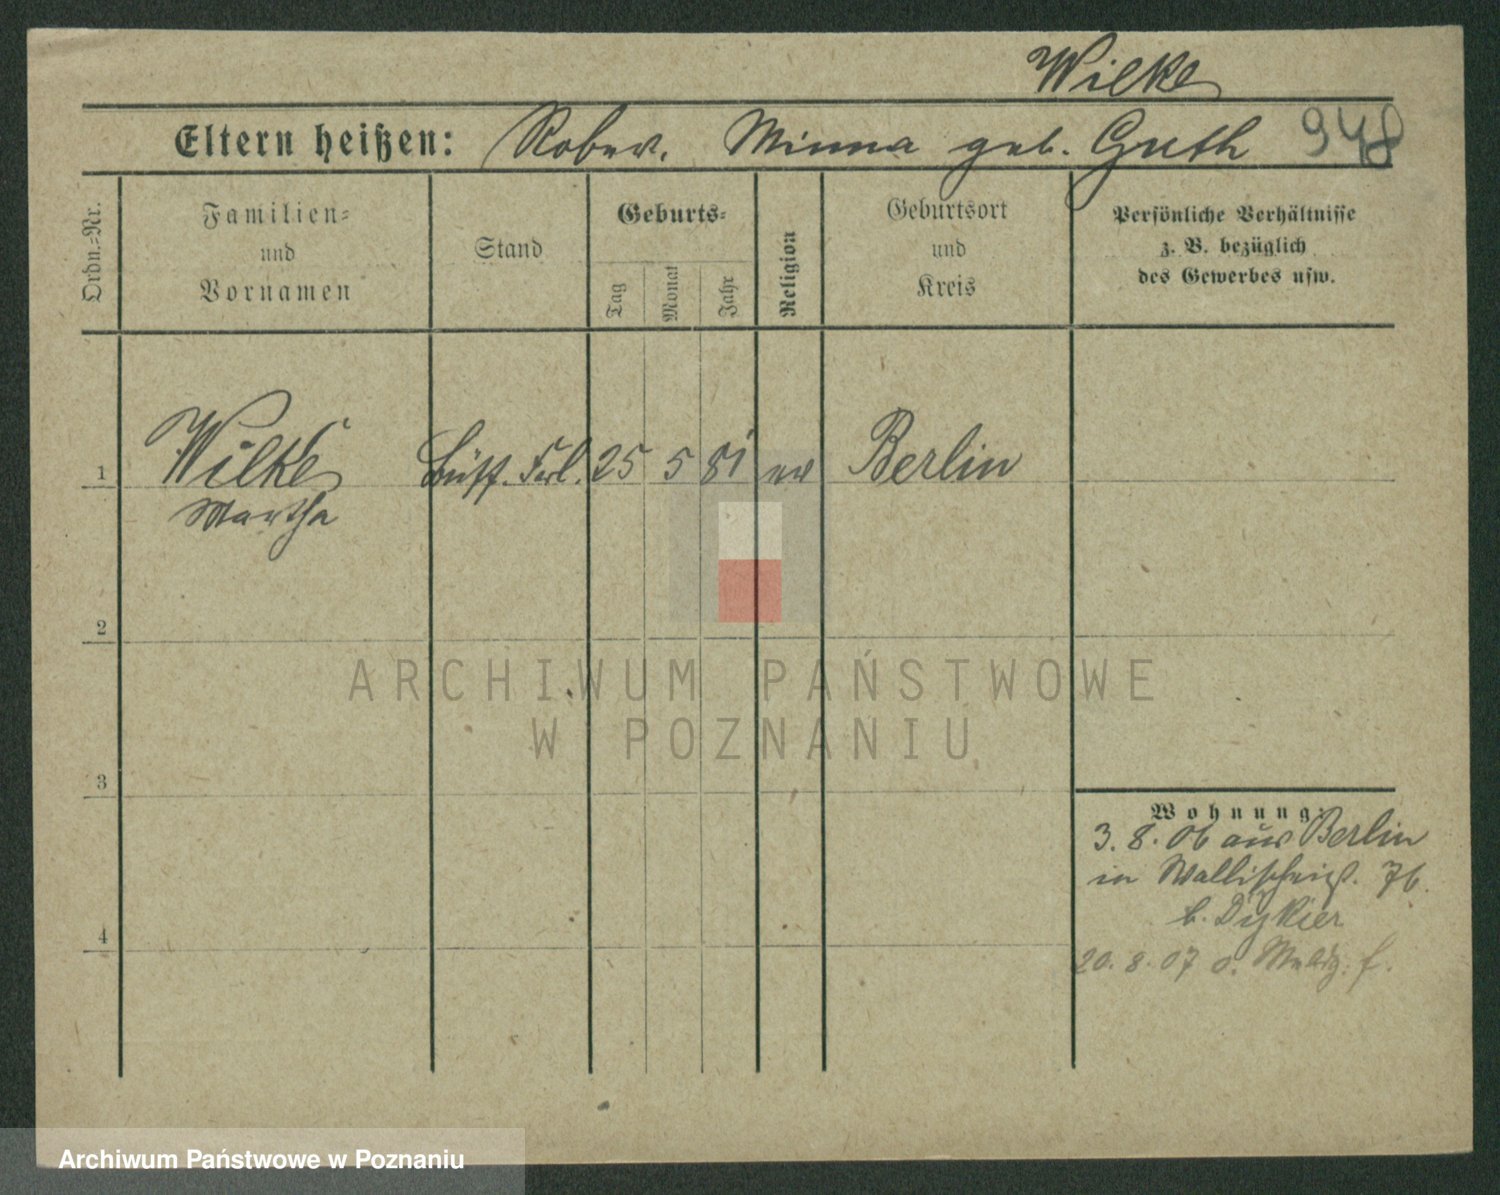 Wilke
Eltern heißen: Robert. Minna geb. Guth 948
Ordn.-Nr.
Familien-
und
Vornamen
Stand
Geburts-
Tag
Monat
Jahr
Religion
Geburtsort
und
Kreis
Persönliche Verhältnisse
z. B. bezüglich
des Gewerbes usw.
1 Wilke Büff. Frl. 25 5 81 ev Berlin
Martha
2
ARCHIWUM PAŃSTWOWE
W POZNANIU
3
Wohnung:
3. 8. 06 aus Berlin
in Wallischeig. 76.
b. Dykier
4
20. 8. 07 o. Meldg. f.
Archiwum Państwowe w Poznaniu